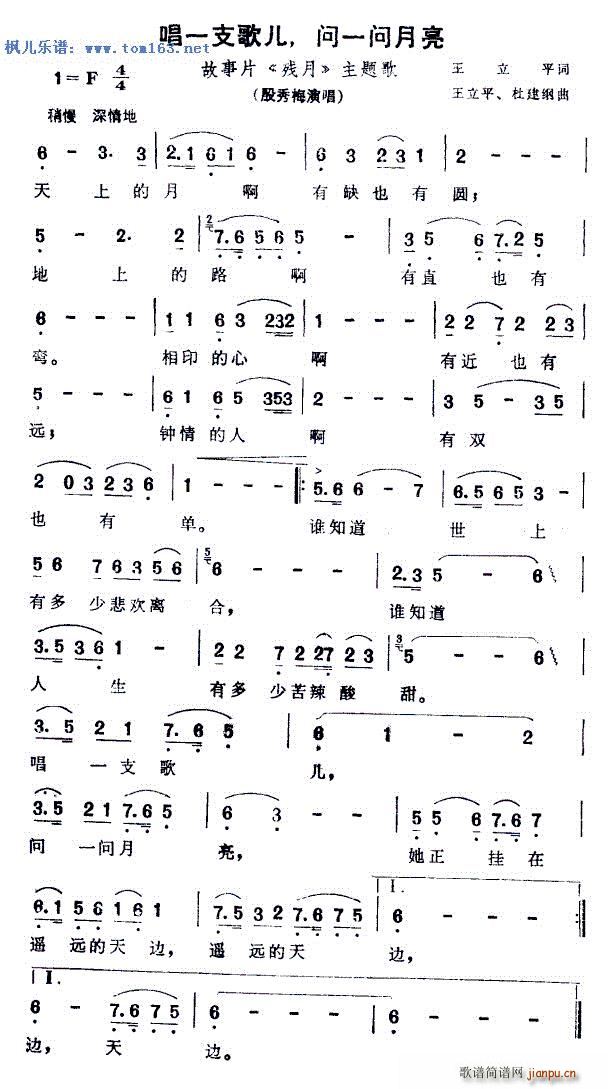 枫儿乐谱: www.tom163.net
唱一支歌儿，问一问月亮
1=F 4/4 故事片《残月》主题歌 王立平词
(殷秀梅演唱) 王立平、杜建纲曲
稍慢 深情地
6 - 3· 3 | 2.1 6 1 6 - | 6 3 2 3 1 | 2 - - - |
天上的月啊有缺也有圆；
5 - 2· 2 | 7.6 5 6 5 - | 3 5 6 7.2 5 |
地上的路啊有直也有
6 - - - | 1 1 6 3 232 | 1 - - - | 2 2 7 2 2 3 |
弯。相印的心啊有近也有
5 - - - | 6 1 6 5 353 | 2 - - - | 3 5 - 3 5 |
远；钟情的人啊有双
2 0 3 2 3 6 | 1 - - - :| 5.6 6 - 7 | 6.5 6 5 3 - |
也有单。谁知道世上
5 6 7 6 3 5 | 6 - - - | 2.3 5 - 6 |
有多少悲欢离合，谁知道
3.5 3 6 1 - | 2 2 7 2 27 2 3 | 5 - - 6 |
人生有多少苦辣酸甜。
3. 5 2 1 7. 6 5 | 6 1 - 2 |
唱一支歌儿，
3.5 2 1 7.6 5 | 6 3 - - | 5 5 6 7.6 7 |
问一问月亮，她正挂在
6.1 5 6 1 6 1 | 7.5 3 2 7.6 7 5 | I. 6 - - - :|
遥远的天边，遥远的天边，
I.
6 - 7.6 7 5 | 6 - - - | 6 - - - ‖
边，天边。
歌谱简谱网
jianpu.cn